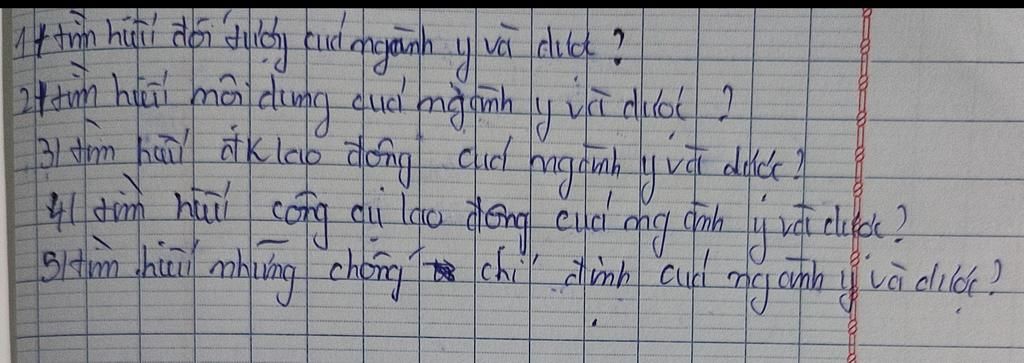 1) tìm hiểu đối tượng của ngành y và dược?
2) tìm hiểu nội dung của ngành y và dược?
3) tìm hiểu đk lao động của ngành y và dược?
4) tìm hiểu công cụ lao động của ngành y và dược?
5) tìm hiểu những chống chỉ định của ngành y và dược?